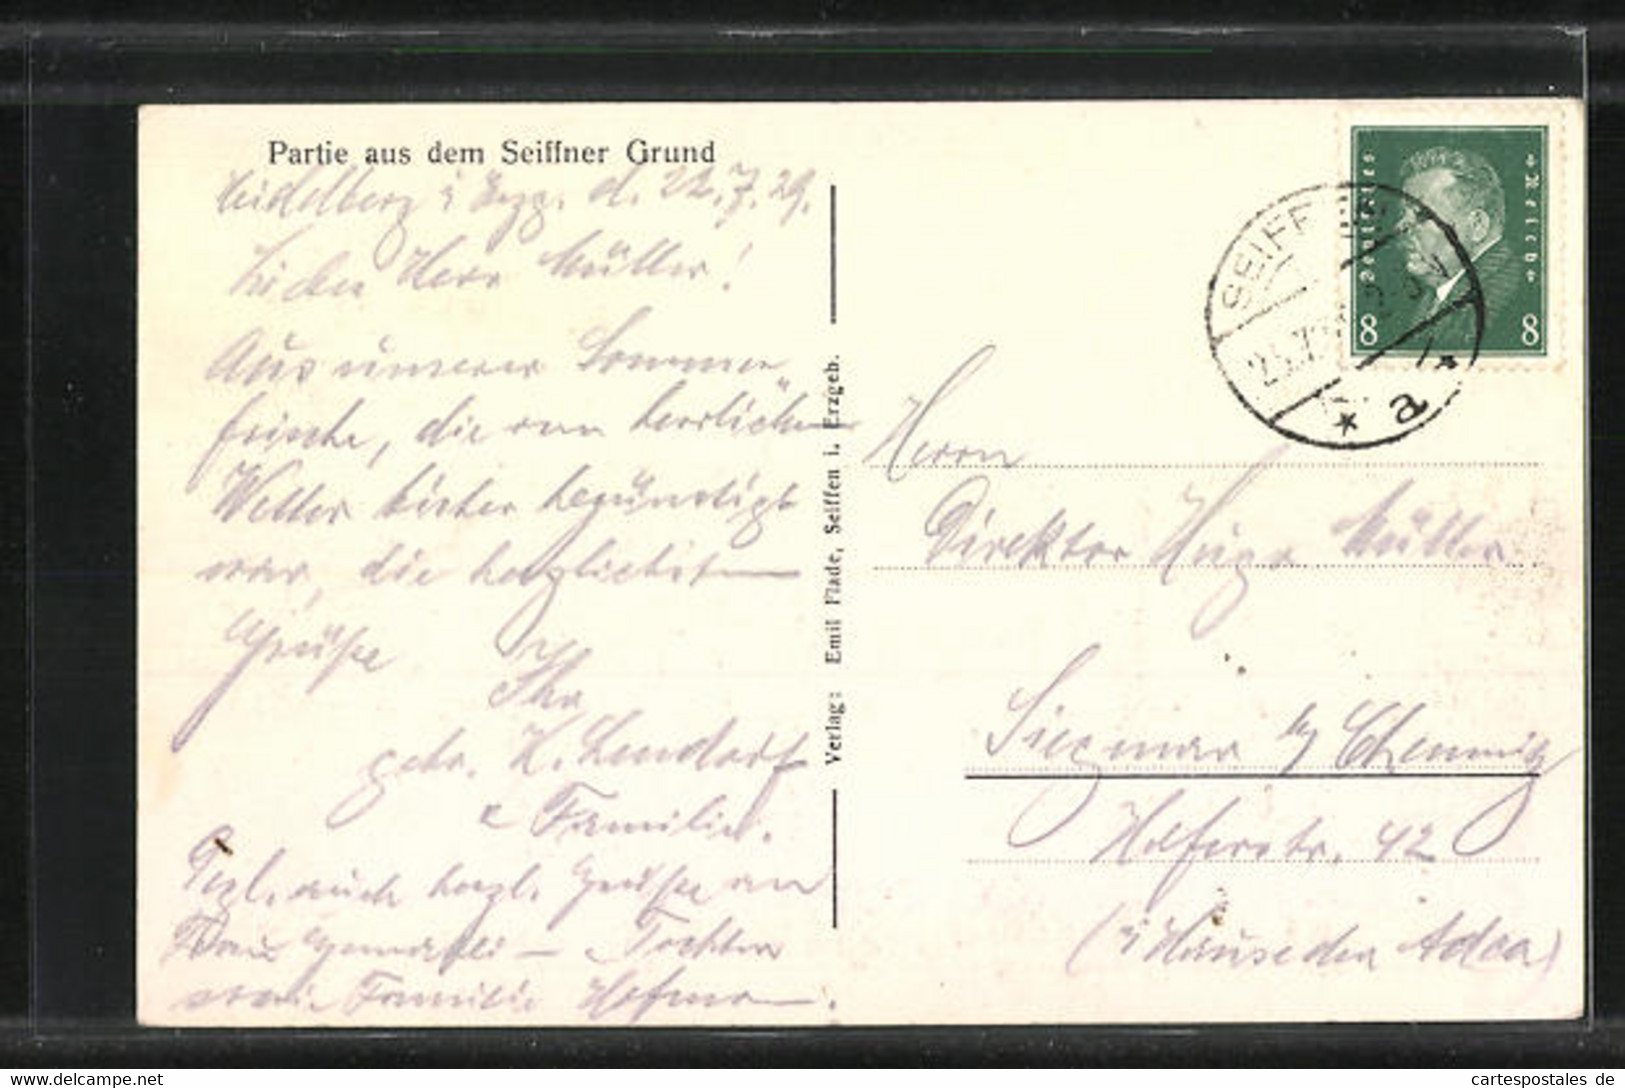 Partie aus dem Seiffner Grund
Heidelberg i Erzg. d. 22.7.29.
Lieber Herr Müller!
Aus unserer Sommer
frische, die von herrlichem
Wetter bisher begünstigt
war, die herzlichsten
Grüße
Ihr
gebr. H. Lendorf
u Familie.
Vergl. auch herzl. Grüße an
Frau Gemahlin Tochter
sowie Familie Hofmann.
Verlag: Emil Flade, Seiffen i. Erzgeb.
Deutsches Reich
8 8
SEIFFEN
a
Herrn
Direktor Hugo Müller
Siegmar b/ Chemnitz
Hoferstr. 42
(i Hause der Adca)
hippostcard.com
cartespostales de